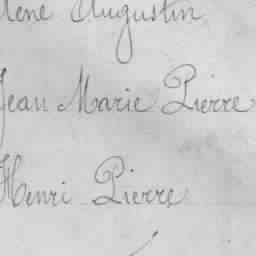 René Augustin
Jean Marie Pierre
Henri Pierre